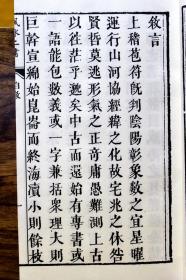 敘言
上稽苞符既判陰陽彰象數之宜星曜
運行山河協經緯之化故宅兆之休咎
賢哲莫逃形氣之正奇庸愚難測上古
以往茫乎邈矣中古而還始有專書或
一語能包數義或一字兼括衆理大則
巨幹宣綿始崑崙而終海濵小則餘枝
自敘